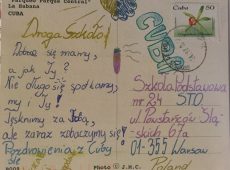 "Parque Central"
La Habana
CUBA
Droga Szkoło!
Dobrze się mamy,
a jak Ty?
Nie długo się spotkamy,
my i Ty!
Tęsknimy za Tobą,
ale zaraz zobaczymy się!
Pozdrowienia z Cuby
CUBA
Cuba
50
Szkoła Podstawowa
nr 24 STO
ul. Powstańców Ślą-
skich 67a
01-355 Warsaw
Poland
Photo © J.M.C.